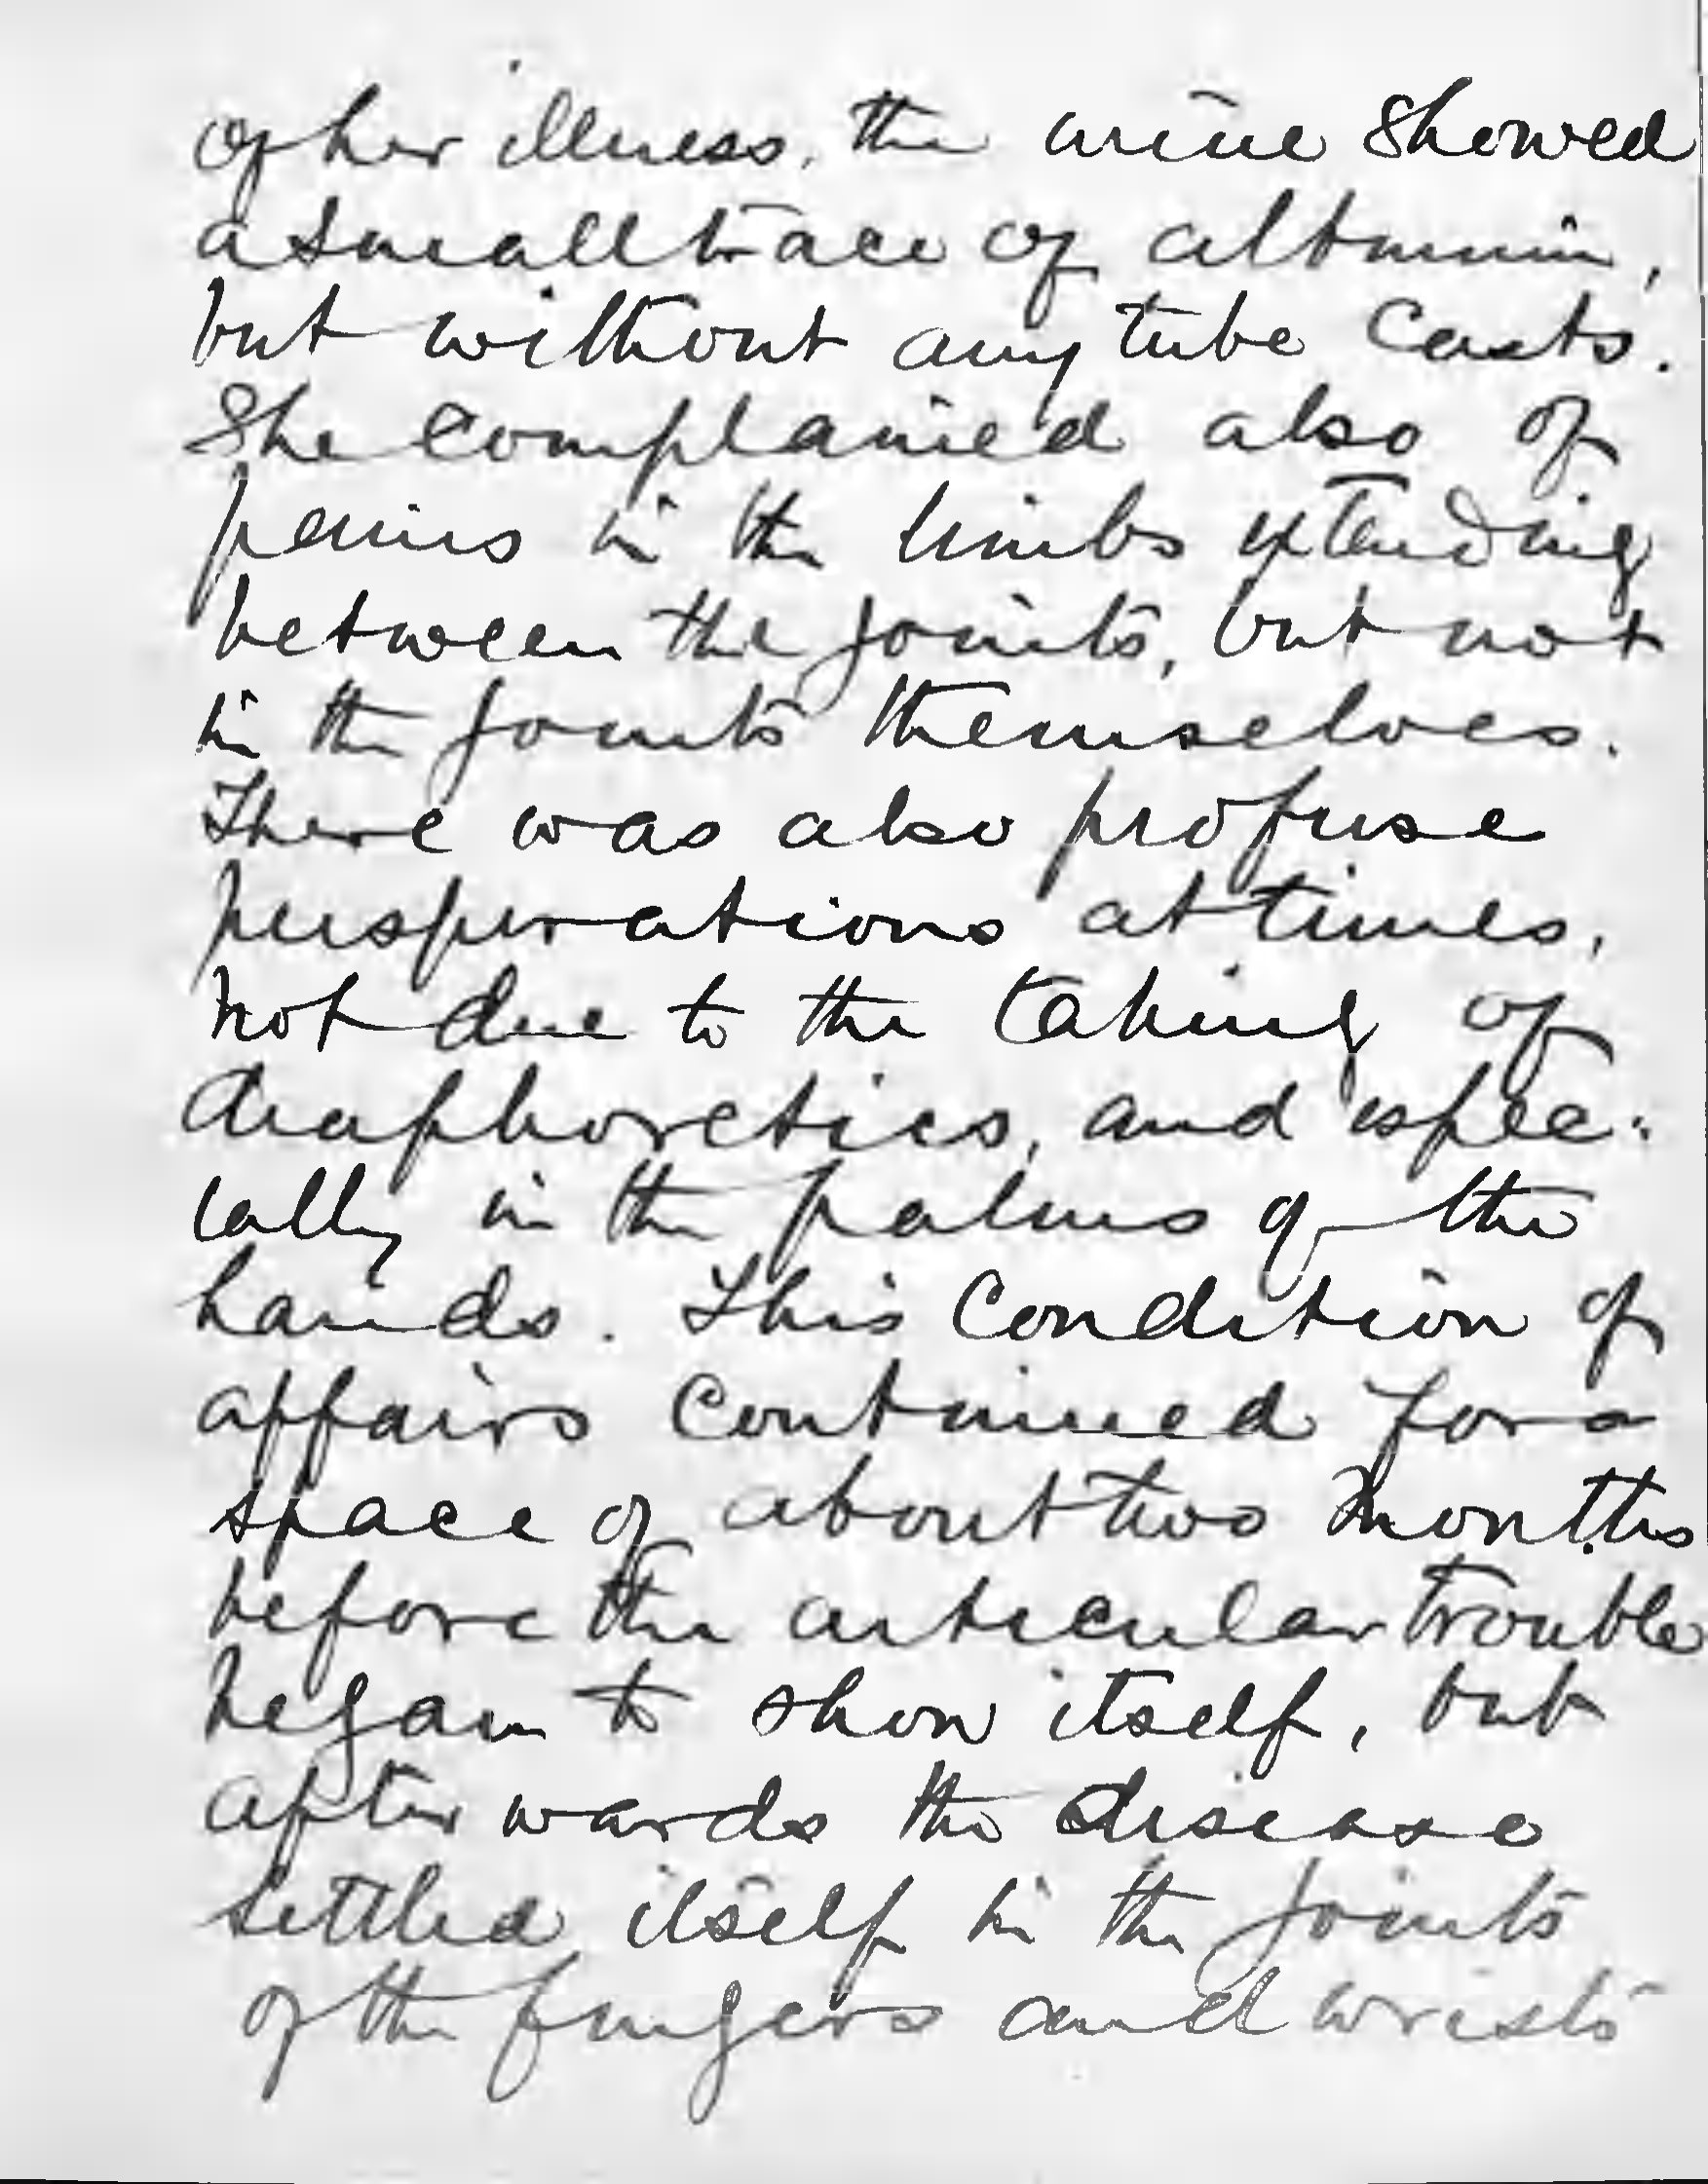 of her illness, the urine showed
a small trace of albumin,
but without any tube casts.
She complained also of
pains in the limbs extending
between the joints, but not
in the joints themselves.
There was also profuse
perspirations at times,
not due to the taking of
diaphoretics, and espec-
ially in the palms of the
hands. This condition of
affairs continued for a
space of about two months
before the articular trouble
began to show itself, but
afterwards the disease
settled itself in the joints
of the fingers and wrists